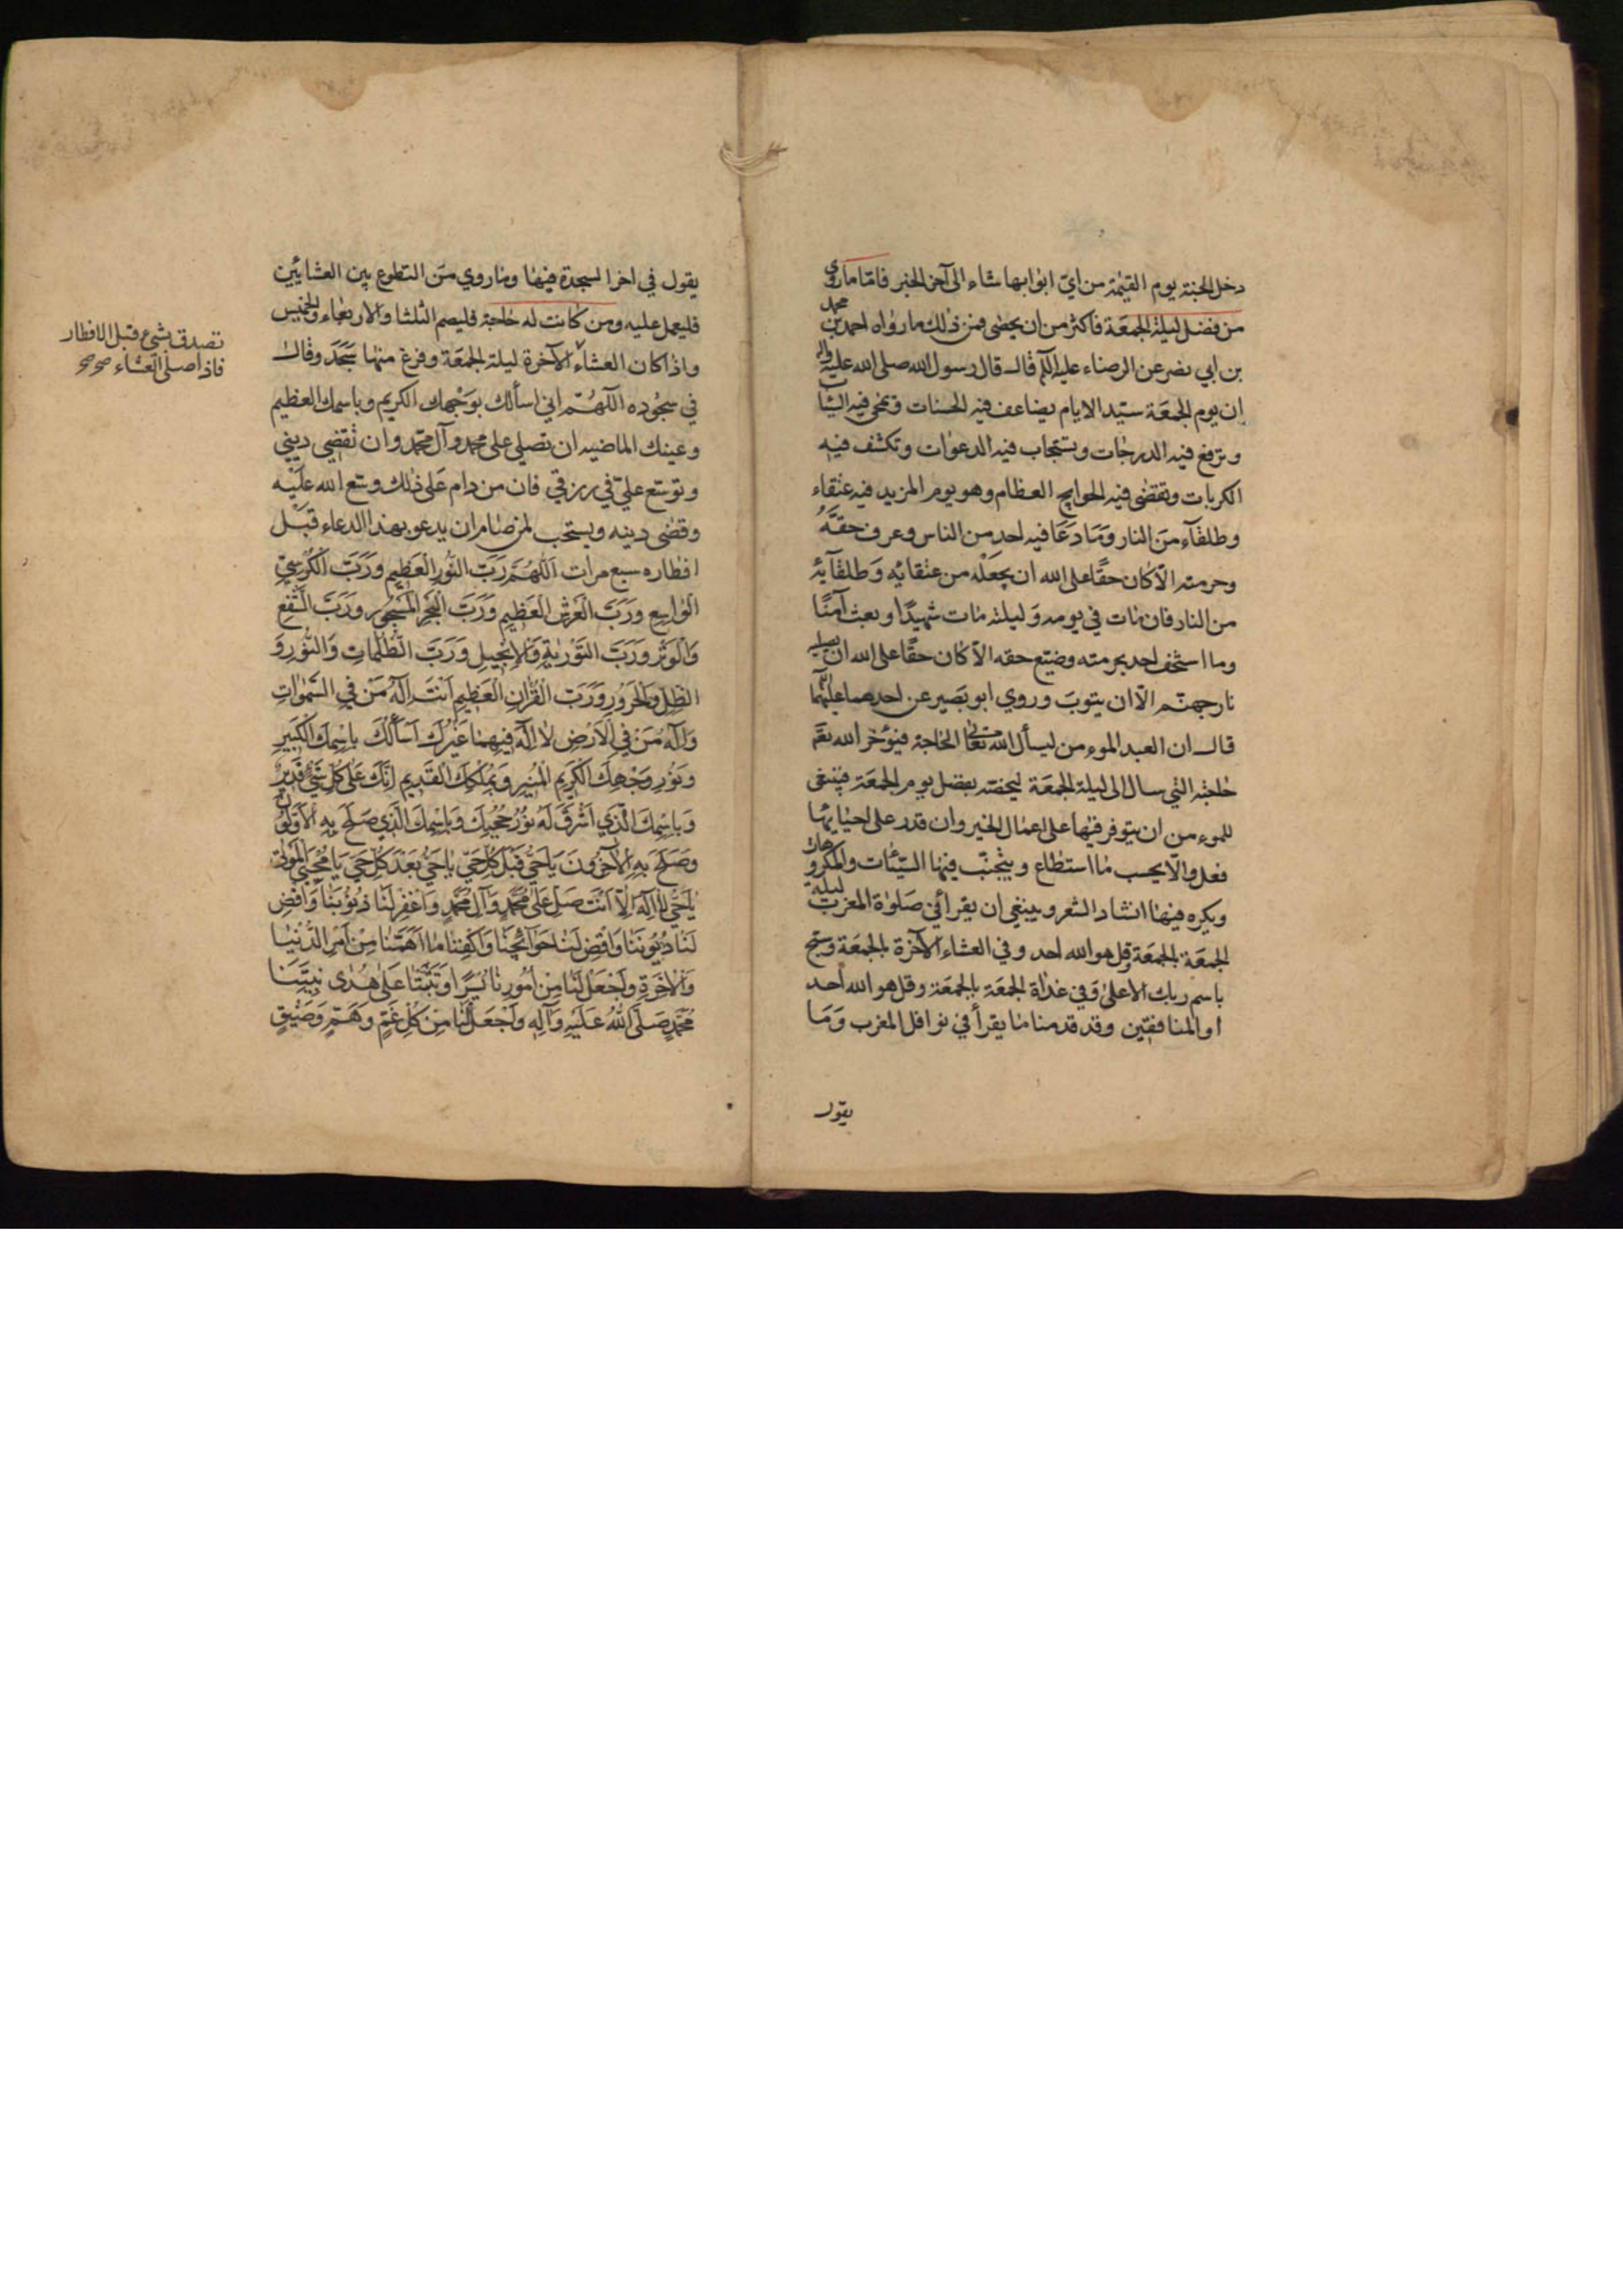 دخل الجنة يوم القيمة من ايّ ابوابها شاء الى آخر الخبر فامّا ماروي
من فضل ليلة الجمعة فاكثر من ان يحصى فمن ذلك مارواه احمد بن محمد
بن ابي نصر عن الرضاء عليه السلم قال قال رسول الله صلى الله عليه واله
ان يوم الجمعة سيّد الايام يضاعف فيه الحسنات وتمحى فيه السيّات
وترفع فيه الدرجات ويستجاب فيه الدعوات وتكشف فيه
الكربات وتقضى فيه الحوايج العظام وهو يوم المزيد فيه عتقاء
وطلقآء من النار وما دعا فيه احد من الناس وعرف حقّهُ
وحرمته الّا كان حقًا على الله ان يجعله من عتقايه وطلقآيه
من النار فان مات في يومه وليلته مات شهيدًا وبعث آمنًا
وما استخف احد بحرمته وضيّع حقه الّا كان حقًا على الله ان يصليه
نار جهنّم الّا ان يتوب وروي ابو بصير عن احدهما عليهما
قال ان العبد الموءمن ليسأل الله تعالى الحاجة فيؤخر الله تعم
حاجته التي سال الى ليلة الجمعة ليخصّه بفضل يوم الجمعة فينبغي
للموءمن ان يتوفر فيها على اعمال الخير وان قدر على احيايها
فعل والّا بحسب ما استطاع ويتجنّب فيها السيّئات والمكروهات
ويكره فيها انشاد الشعر وينبغي ان يقرأ في صلوة المغرب ليلة
الجمعة بالجمعة وقل هو الله احد وفي العشاء الآخرة بالجمعة وسبّح
باسم ربك الاعلى وفي غداة الجمعة بالجمعة وقل هو الله احد
او المنافقين وقد قدمنا ما يقرأ في نوافل المغرب وما
يقول
يقول في اخر السجدة فيها وما روي من التطوع بين العشائين
فليعمل عليه ومن كانت له حاجة فليصم الثلثا والاربعاء والخميس
واذا كان العشاء الآخرة ليلة الجمعة وفرغ منها سَجَدَ وقال
في سجوده اللّهُمّ اني اسألك بوَجْهك الكريم وباسمك العظيم
وعينك الماضيه ان تصلي على محمد وآل محمّد وان تقضي ديني
وتوسّع عليّ في رزقي فان من دام على ذلك وسّع الله عليه
وقضى دينه ويستحب لمن صام ان يدعو بهذا الدعاء قبل
افطاره سبع مرات اَللّهُمَّ رَبَّ النُّورِ الْعَظِيمِ وَرَبَّ الْكُرْسِيِّ
الْوَاسِعِ وَرَبَّ الْعَرْشِ الْعَظِيمِ وَرَبَّ الْبَحْرِ الْمَسْجُورِ وَرَبَّ الشَّفْعِ
وَالْوَتْرِ وَرَبَّ التَّوْرٰيةِ وَالْاِنْجِيلِ وَرَبَّ الظُّلُمَاتِ وَالنُّورِ وَ
الظِّلِّ وَالْحَرُورِ وَرَبَّ الْقُرْآنِ الْعَظِيمِ اَنْتَ اِلٰهُ مَنْ فِي السَّمٰوَاتِ
وَاِلٰهُ مَنْ فِي الْاَرْضِ لَا اِلٰهَ فِيهِمَا غَيْرُكَ اَسْأَلُكَ بِاسْمِكَ الْكَبِيرِ
وَنُورِ وَجْهِكَ الْكَرِيمِ الْمُنِيرِ وَبِمُلْكِكَ الْقَدِيمِ اِنَّكَ عَلَى كُلِّ شَيْءٍ قَدِيرٌ
وَبِاسْمِكَ الَّذِي اَشْرَقَ لَهُ نُورُ حُجُبِكَ وَبِاسْمِكَ الَّذِي صَلَحَ بِهِ الْاَوَّلُونَ
وَصَلَحَ بِهِ الْآخِرُونَ يَا حَيُّ قَبْلَ كُلِّ حَيٍّ يَا حَيُّ بَعْدَ كُلِّ حَيٍّ يَا مُحْيِيَ الْمَوْتٰى
يَا حَيُّ لَا اِلٰهَ اِلَّا اَنْتَ صَلِّ عَلَى مُحَمَّدٍ وَآلِ مُحَمَّدٍ وَاغْفِرْ لَنَا ذُنُوبَنَا وَاقْضِ
لَنَا دُيُونَنَا وَاقْضِ لَنَا حَوَائِجَنَا وَاكْفِنَا مَا اَهَمَّنَا مِنْ اَمْرِ الدُّنْيَا
وَالْآخِرَةِ وَاجْعَلْ لَنَا مِنْ اُمُورِنَا يُسْرًا وَثَبِّتْنَا عَلَى هُدَى نَبِيِّنَا
مُحَمَّدٍ صَلَّى اللّٰهُ عَلَيْهِ وَآلِهِ وَاجْعَلْ لَنَا مِنْ كُلِّ غَمٍّ وَهَمٍّ وَضِيقٍ
تصدق بشيء قبل الافطار
فاذا صلى العشاء